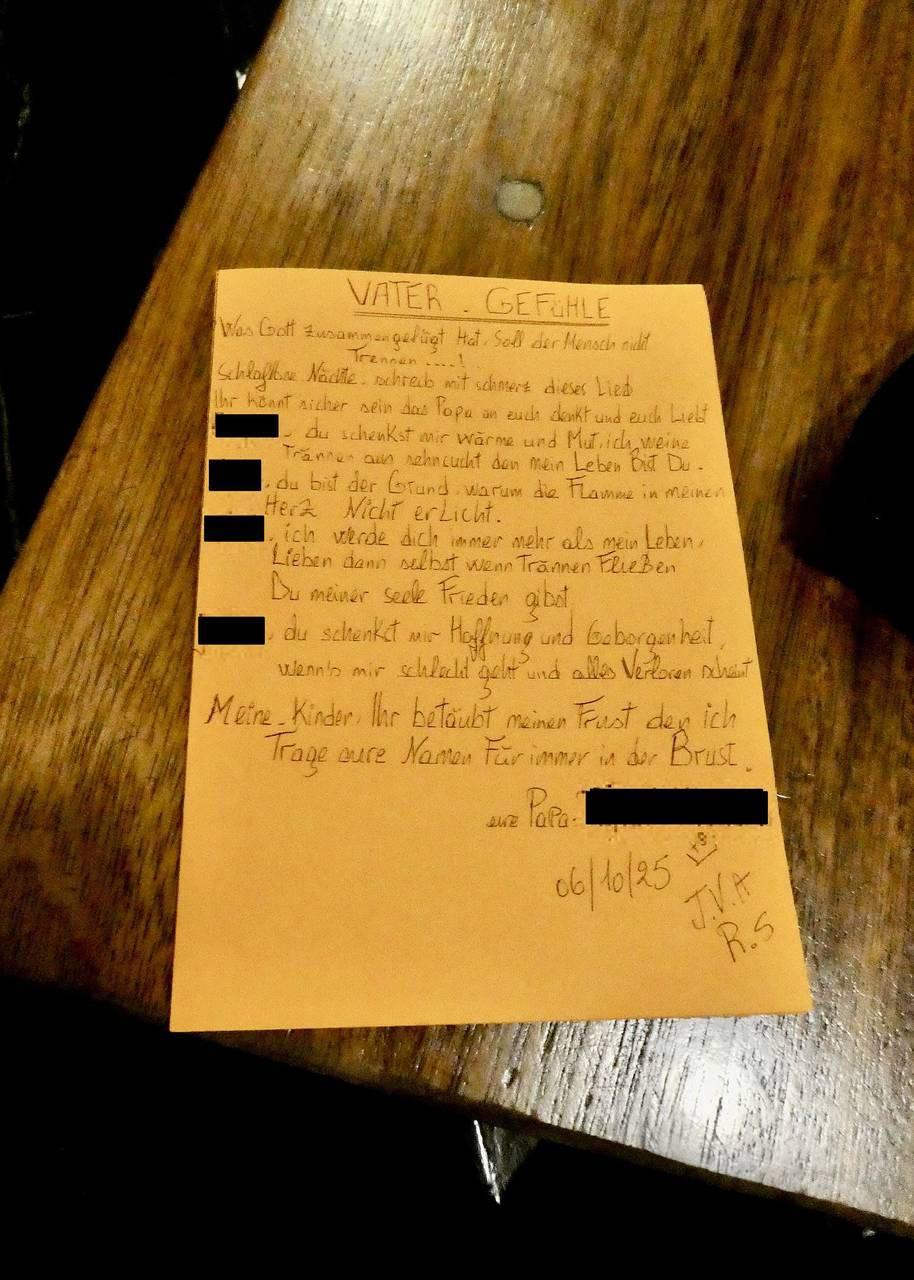 VATER . GEFÜHLE
Was Gott zusammengefügt Hat, Soll der Mensch nicht
Trennen ....!
Schlaflose Nächte. schreib mit schmerz dieses Lied
Ihr könnt sicher sein das Papa an euch denkt und euch Liebt
, du schenkst mir Wärme und Mut, ich weine
Trännen aus sehncucht den mein Leben Bist Du.
, du bist der Grund, warum die Flamme in meinen
Herz Nicht erLicht.
, ich werde dich immer mehr als mein Leben,
Lieben dann selbst wenn Trännen FließBen
Du meiner seele Frieden gibst
, du schenkst mir Hoffnung und Geborgenheit,
wenn's mir schlecht geht und alles Verloren scheint
Meine Kinder, Ihr betäubt meinen Frust den ich
Trage eure Namen Für immer in der Brust.
eure Papa.
06/10/25
J.V.A
R.S